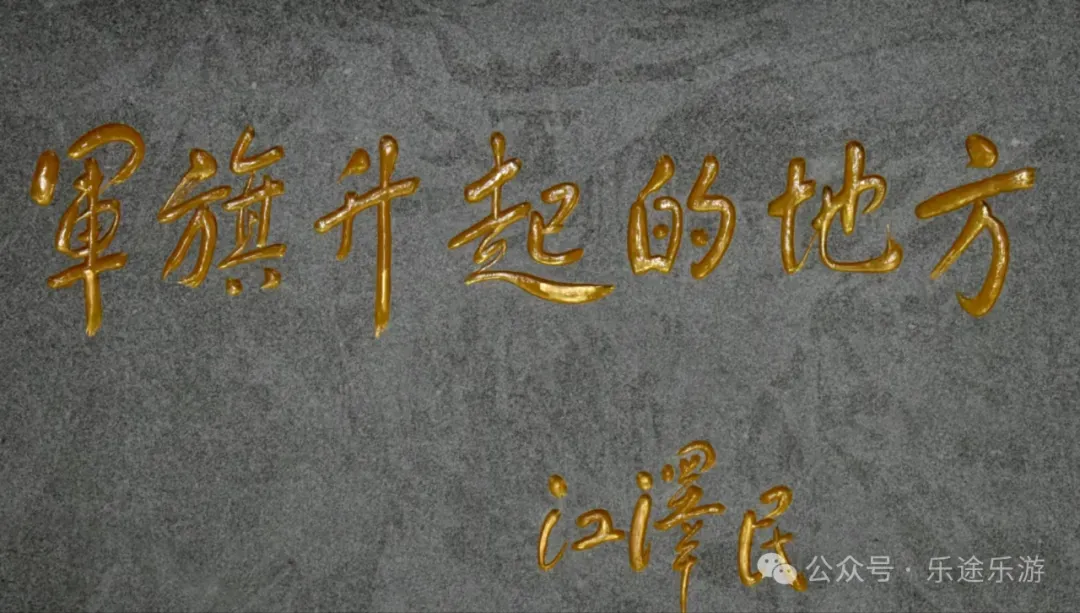 軍旗升起的地方
江澤民
公众号·乐途乐游